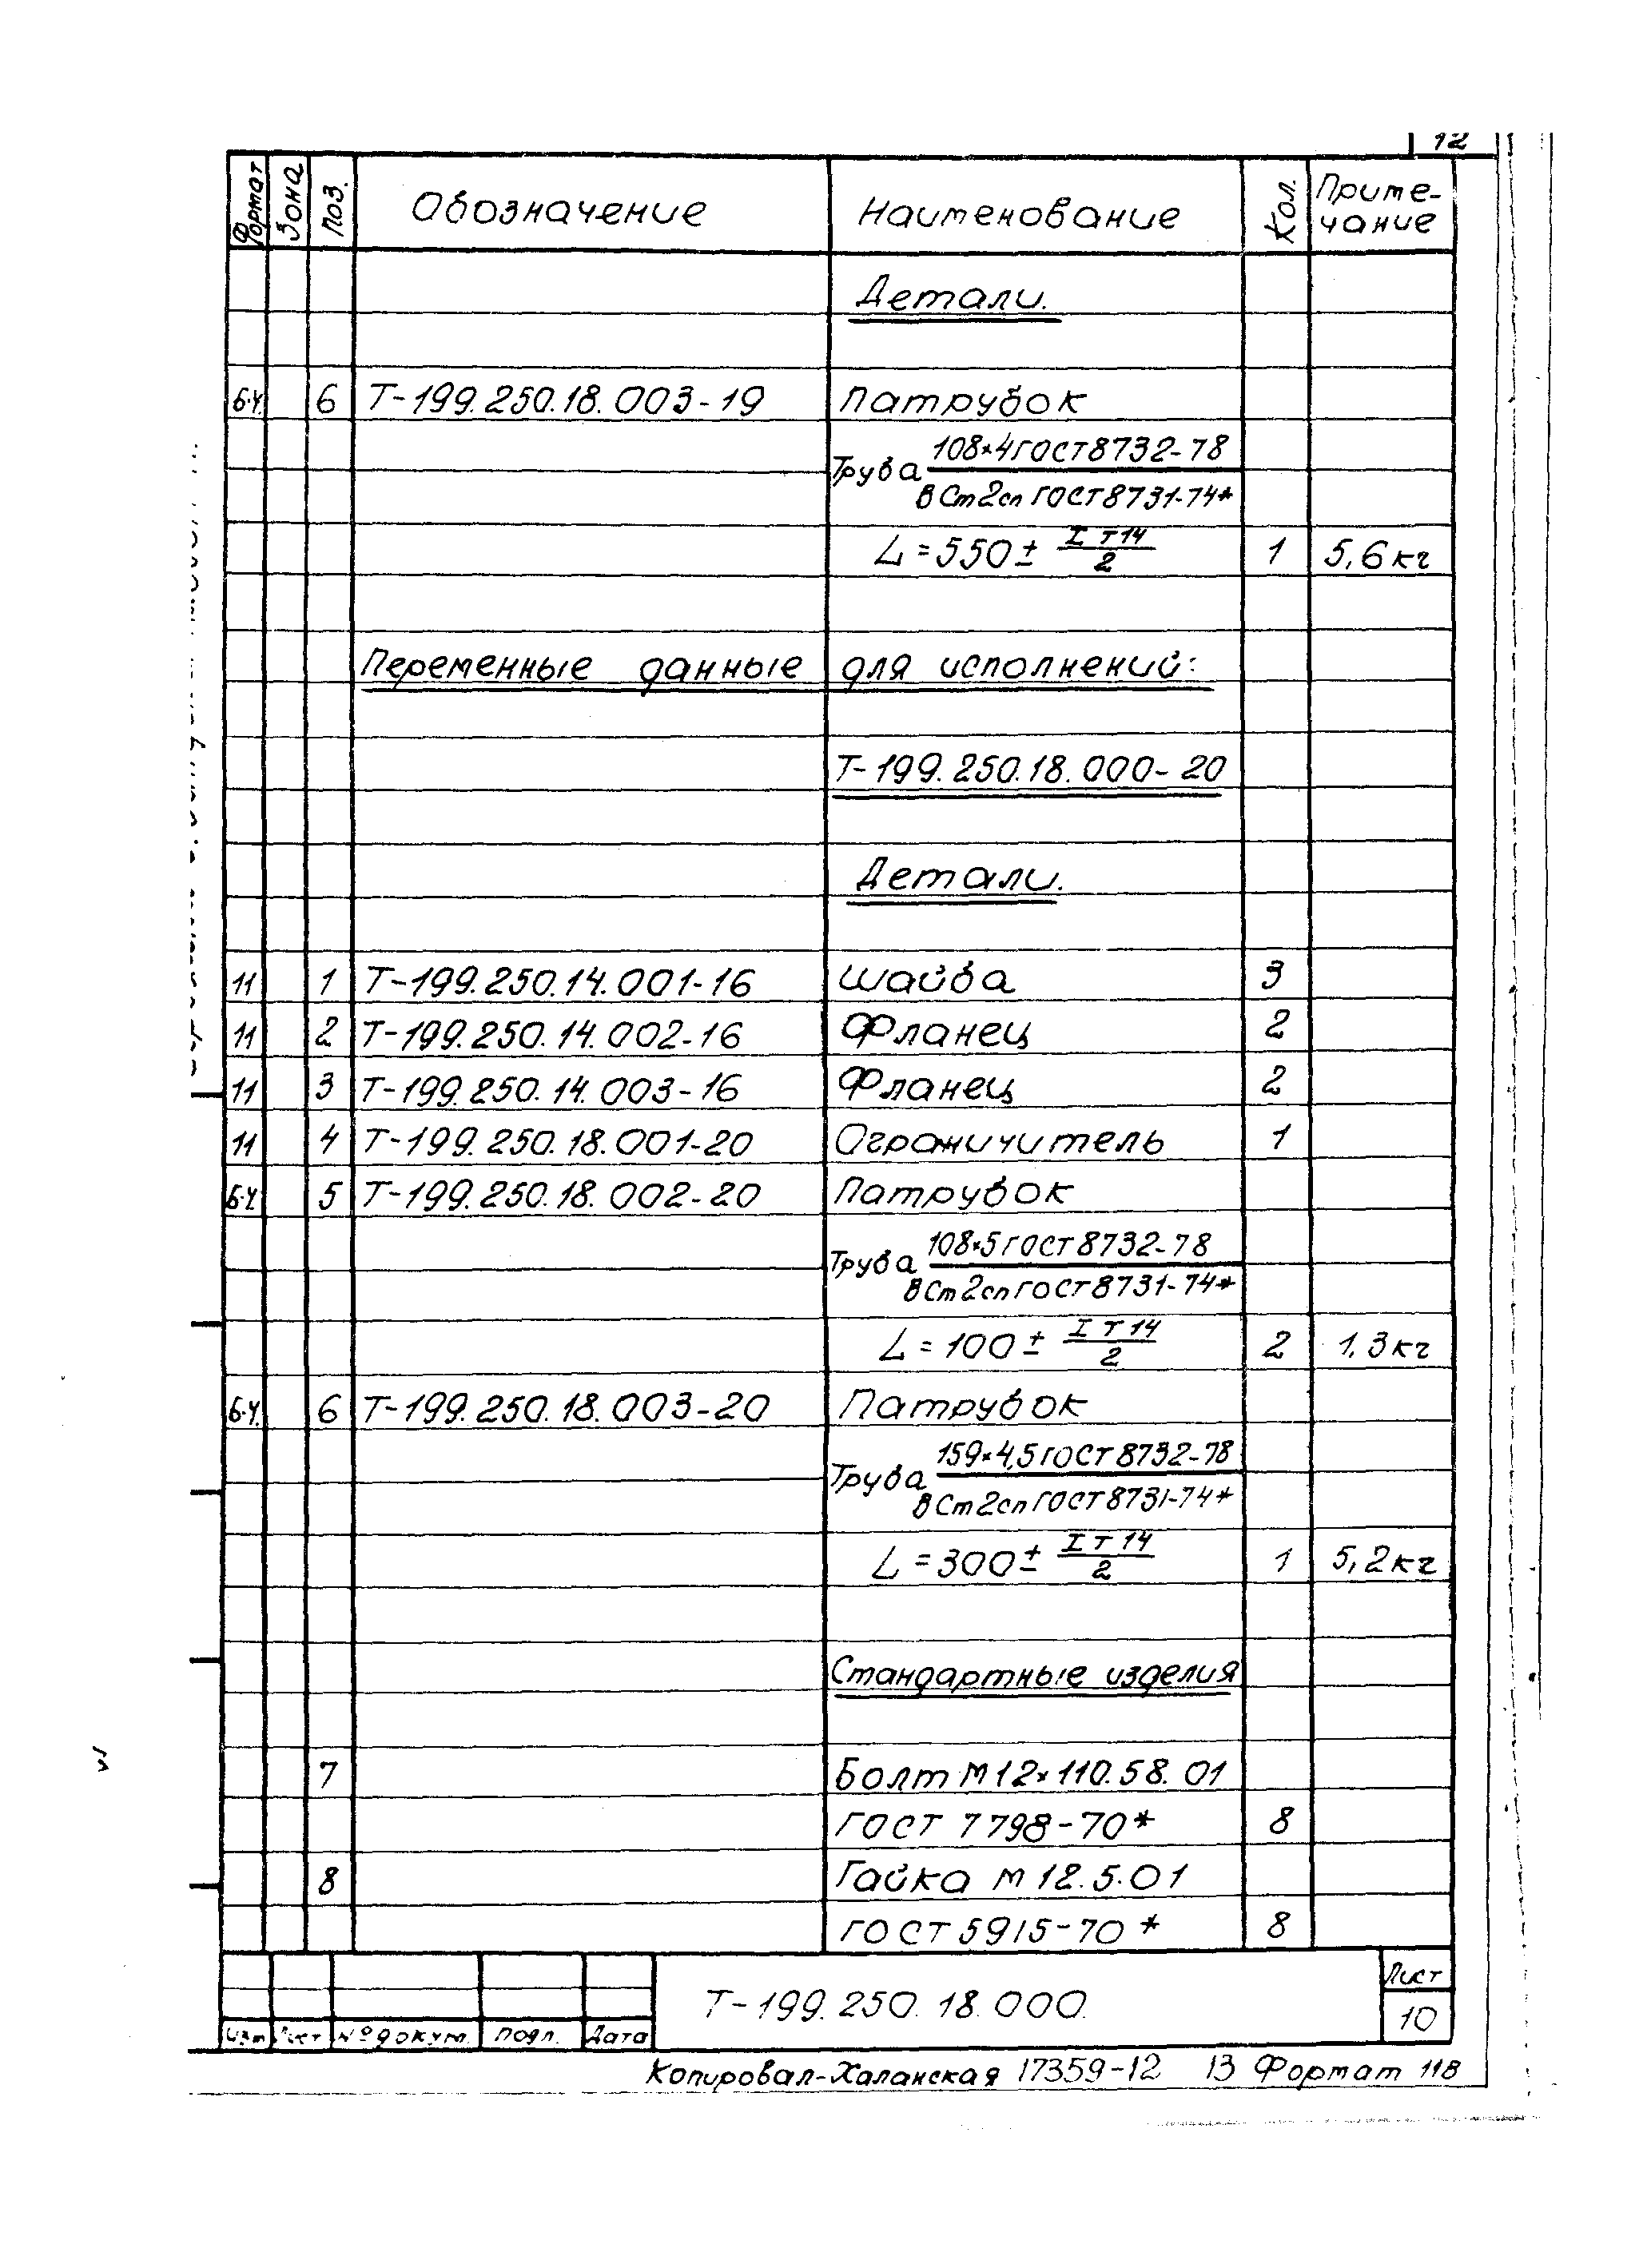 12
Формат Зона Поз. Обозначение Наименование Кол. Приме-
чание
Детали.
б.ч. 6 Т-199.250.18.003-19 Патрубок
Труба 108×4 ГОСТ 8732-78
ВСт2сп ГОСТ 8731-74*
L=550± IT14/2 1 5,6кг
Переменные данные для исполнений:
Т-199.250.18.000-20
Детали.
11 1 Т-199.250.14.001-16 Шайба 3
11 2 Т-199.250.14.002-16 Фланец 2
11 3 Т-199.250.14.003-16 Фланец 2
11 4 Т-199.250.18.001-20 Ограничитель 1
б.ч. 5 Т-199.250.18.002-20 Патрубок
Труба 108×5 ГОСТ 8732-78
ВСт2сп ГОСТ 8731-74*
L=100± IT14/2 2 1.3кг
б.ч. 6 Т-199.250.18.003-20 Патрубок
Труба 159×4,5 ГОСТ 8732-78
ВСт2сп ГОСТ 8731-74*
L=300± IT14/2 1 5,2кг
Стандартные изделия
7 Болт М12×110.58.01
ГОСТ 7798-70* 8
8 Гайка М12.5.01
ГОСТ 5915-70* 8
Т-199.250.18.000. Лист
10
Изм Лист № докум. Подп. Дата
Копировал-Халанская 17359-12 13 Формат 11В